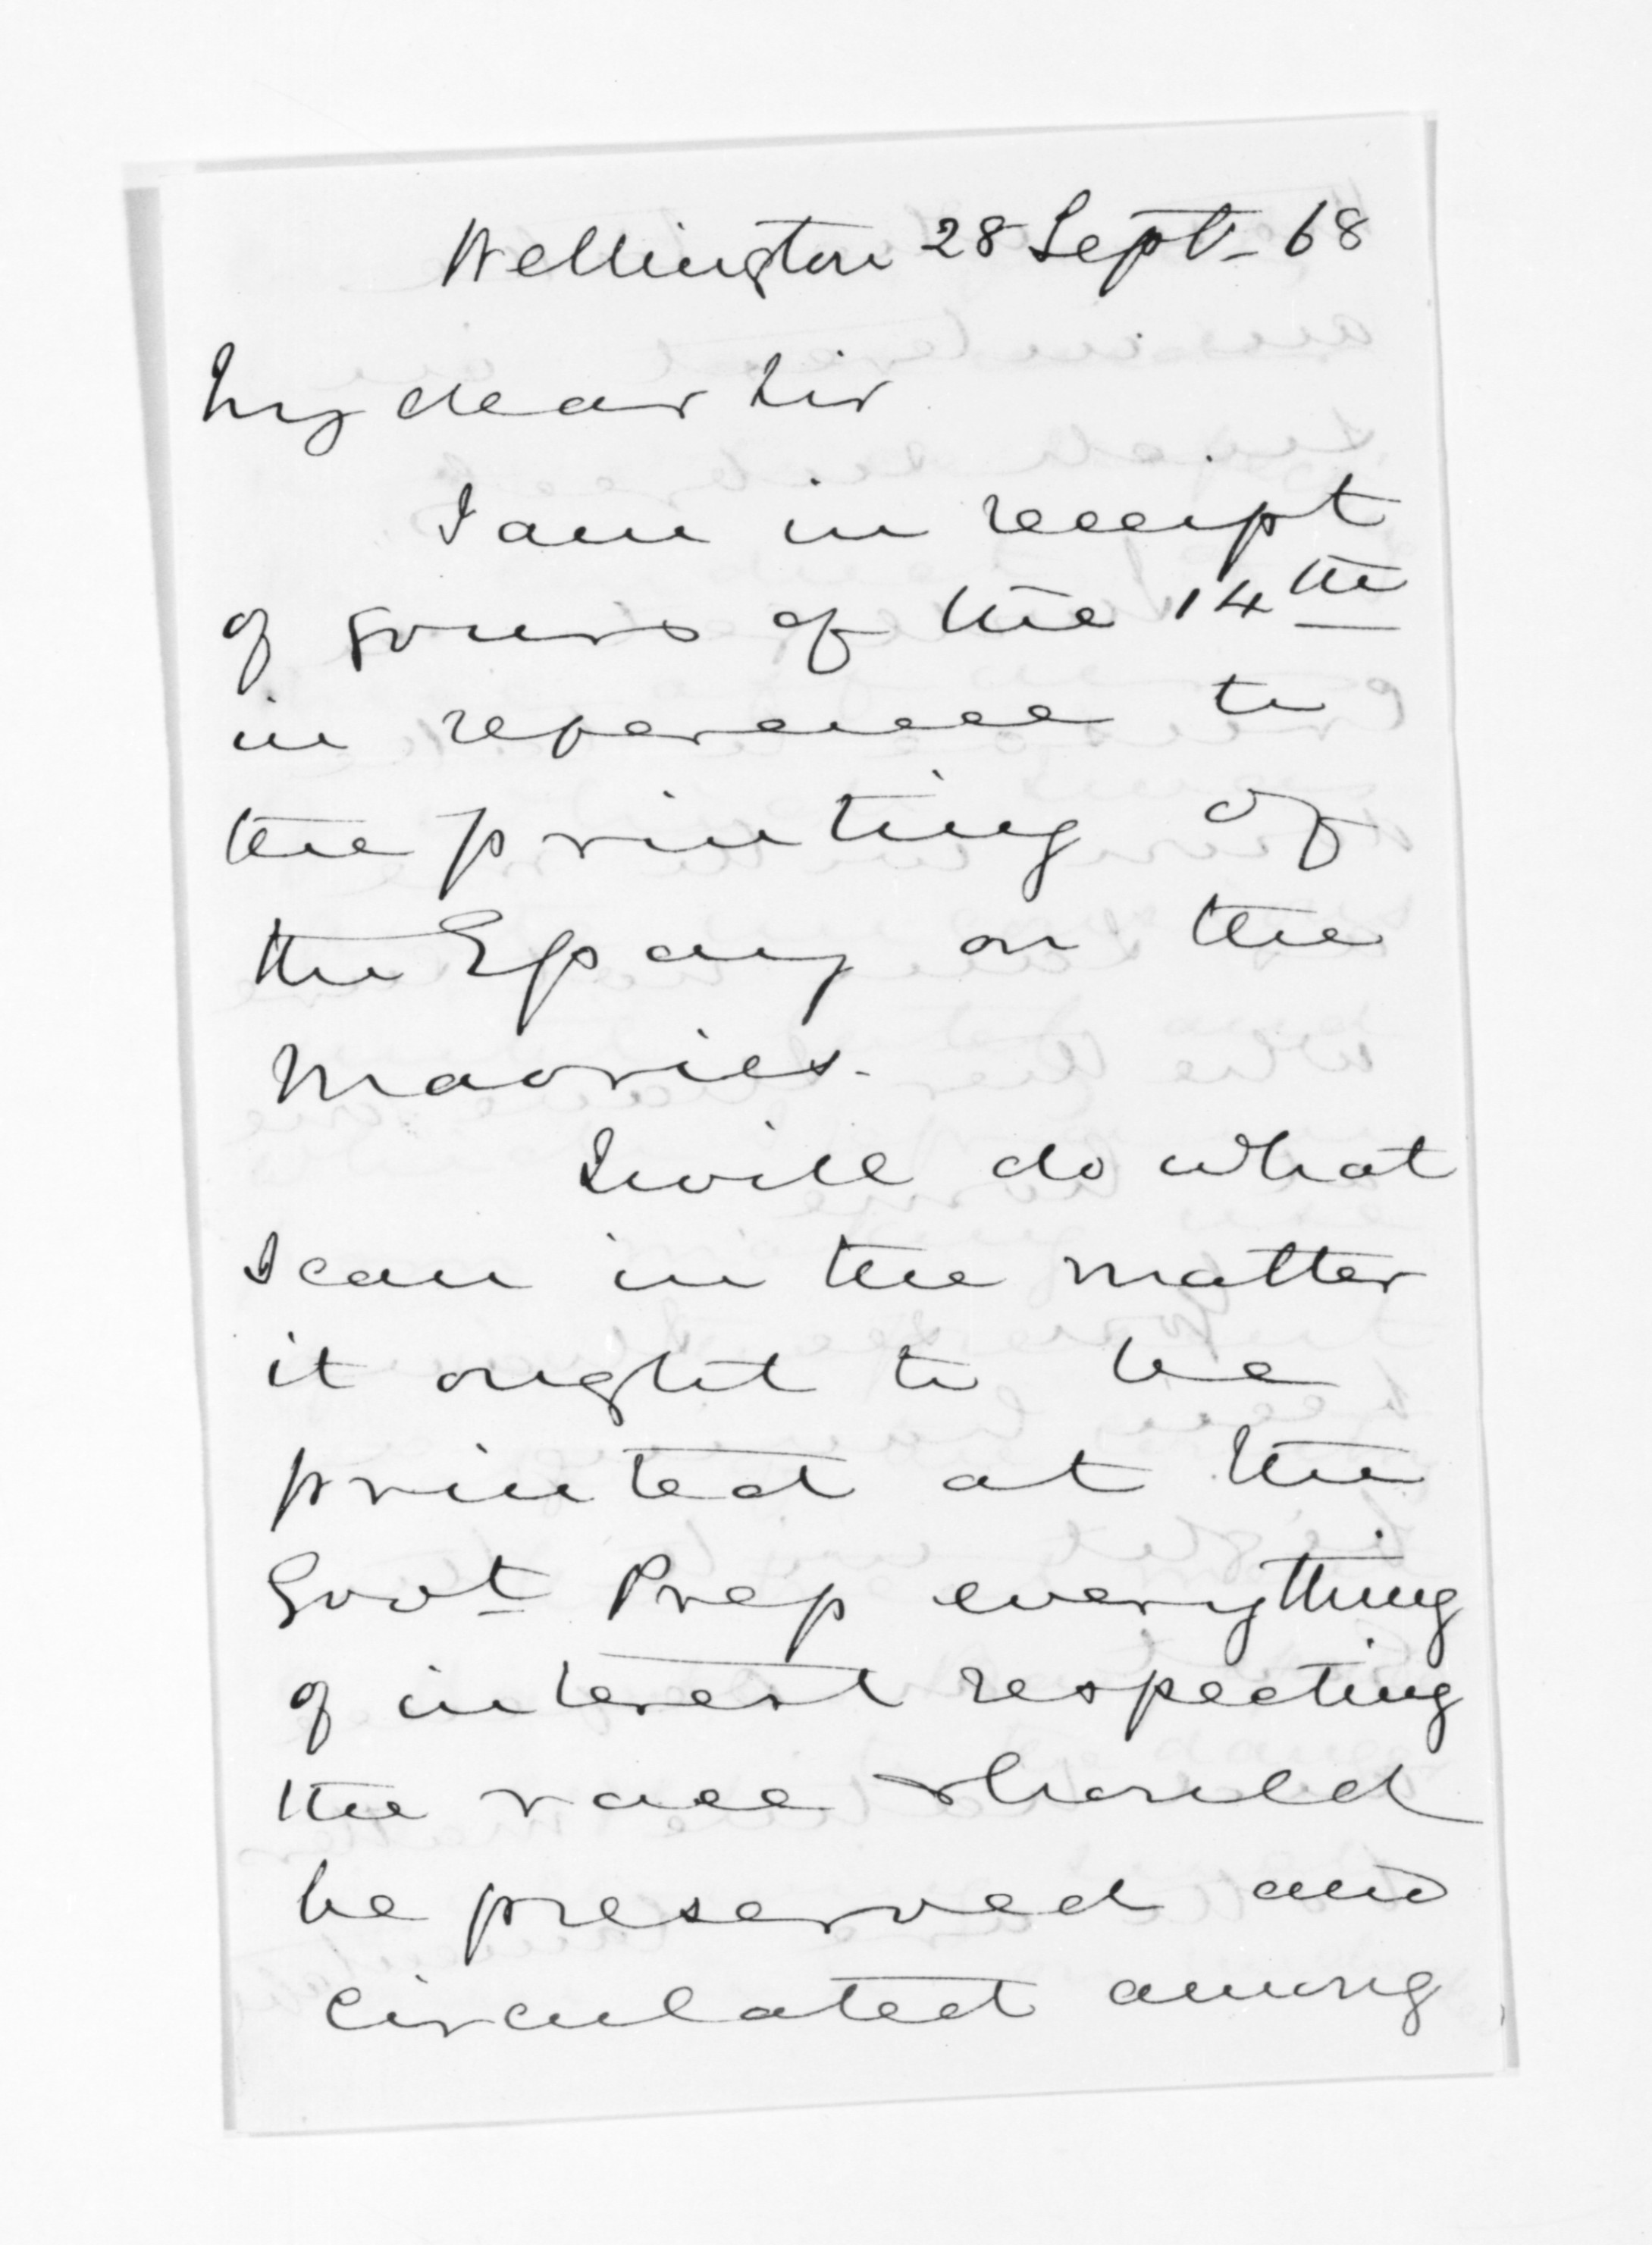 Wellington 28 Sept. 68
My dear Sir
I am in receipt
of yours of the 14th
in reference to
the printing of
the Essay on the
Maories.
I will do what
I can in the matter
it ought to be
printed at the
Govt Press everything
of interest respecting
the race should
be preserved and
circulated among